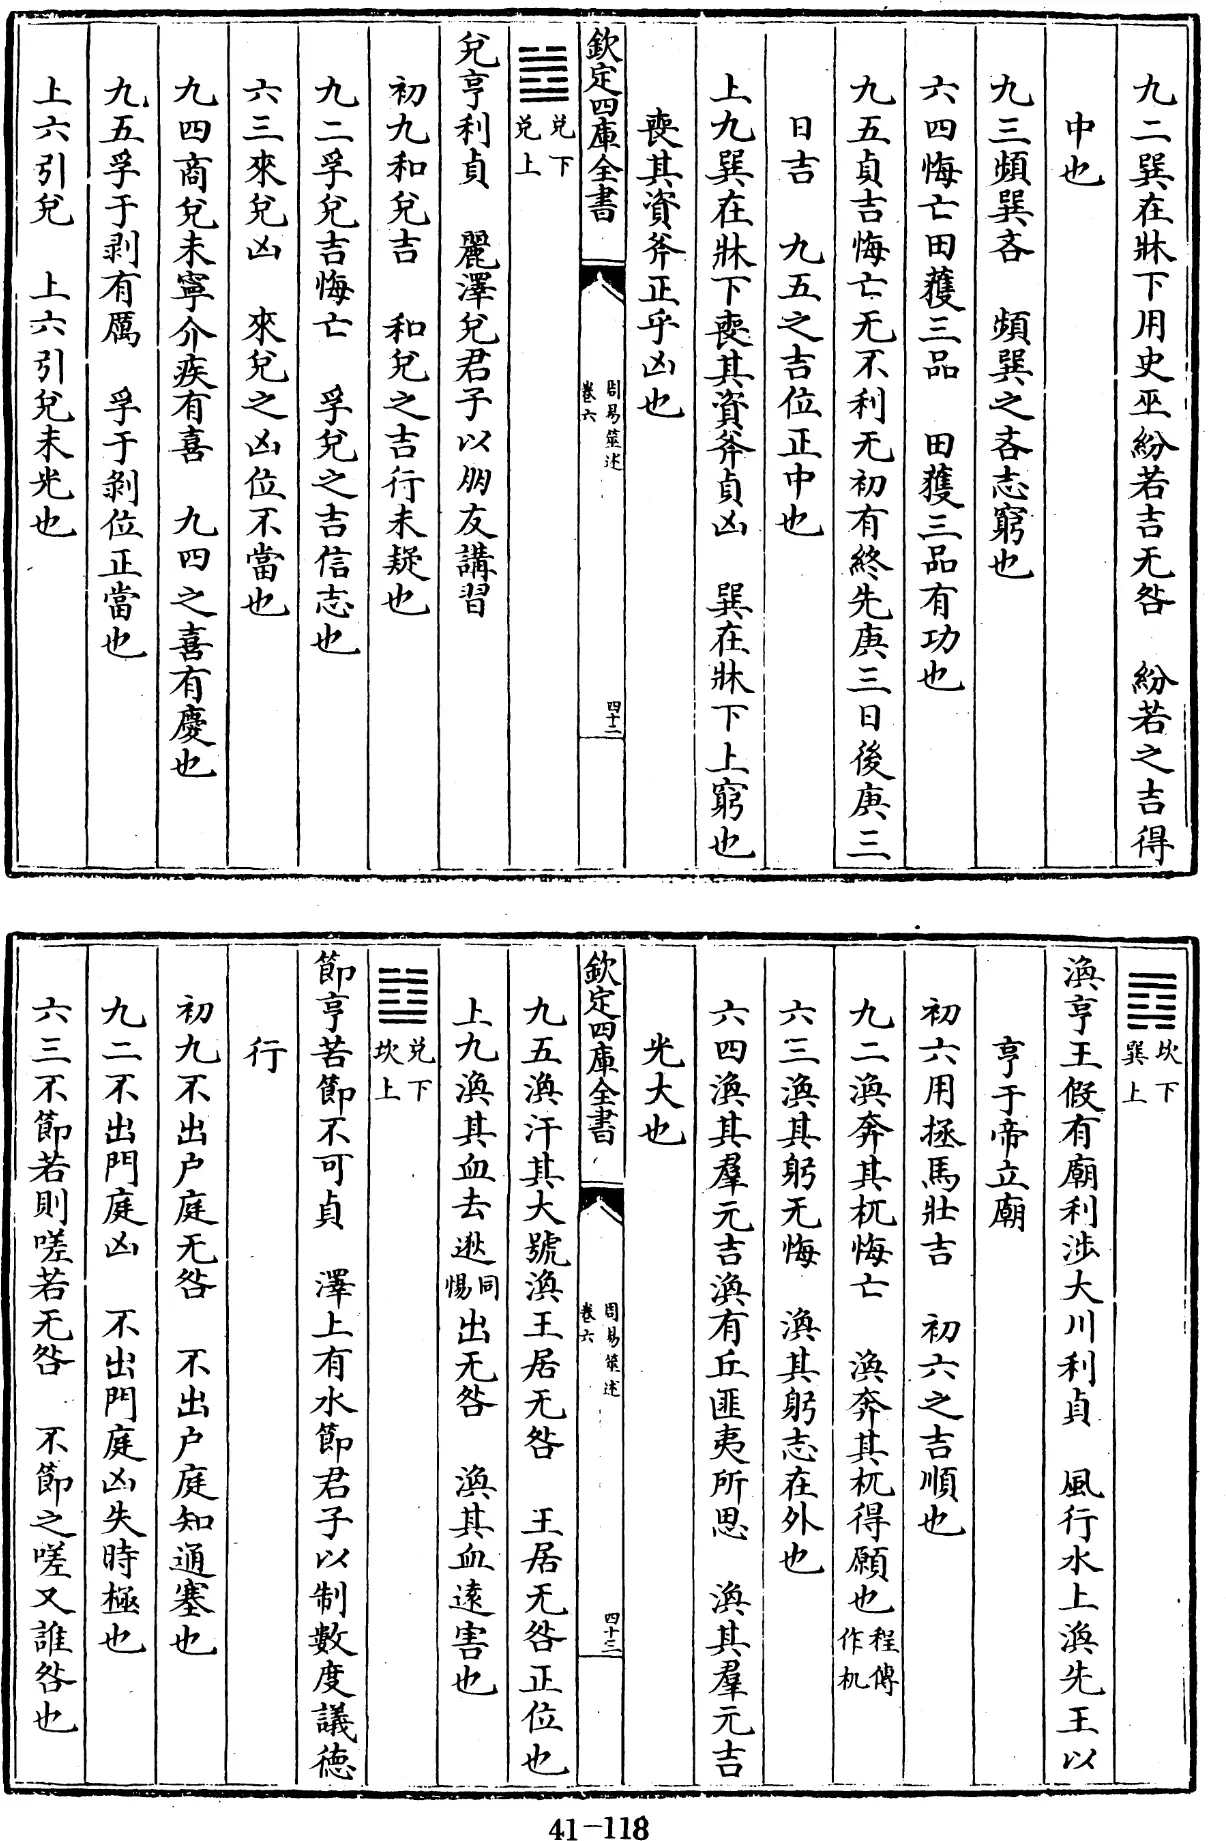 九二巽在牀下用史巫紛若吉无咎　紛若之吉得
中也
九三頻巽吝　頻巽之吝志窮也
六四悔亡田獲三品　田獲三品有功也
九五貞吉悔亡无不利无初有終先庚三日後庚三
日吉　九五之吉位正中也
上九巽在牀下喪其資斧貞凶　巽在牀下上窮也
喪其資斧正乎凶也
欽定四庫全書
周易筮述
卷六
四十二
䷹
兑下
兑上
兑亨利貞　麗澤兑君子以朋友講習
初九和兑吉　和兑之吉行未疑也
九二孚兑吉悔亡　孚兑之吉信志也
六三來兑凶　來兑之凶位不當也
九四商兑未寧介疾有喜　九四之喜有慶也
九五孚于剥有厲　孚于剥位正當也
上六引兑　上六引兑未光也
䷺
坎下
巽上
渙亨王假有廟利涉大川利貞　風行水上渙先王以
亨于帝立廟
初六用拯馬壯吉　初六之吉順也
九二渙奔其杌悔亡　渙奔其杌得願也
程傳
作机
六三渙其躬无悔　渙其躬志在外也
六四渙其羣元吉渙有丘匪夷所思　渙其羣元吉
光大也
欽定四庫全書
周易筮述
卷六
四十三
九五渙汗其大號渙王居无咎　王居无咎正位也
上九渙其血去逖同惕出无咎　渙其血遠害也
䷻
兑下
坎上
節亨苦節不可貞　澤上有水節君子以制數度議德
行
初九不出户庭无咎　不出户庭知通塞也
九二不出門庭凶　不出門庭凶失時極也
六三不節若則嗟若无咎　不節之嗟又誰咎也
41-118